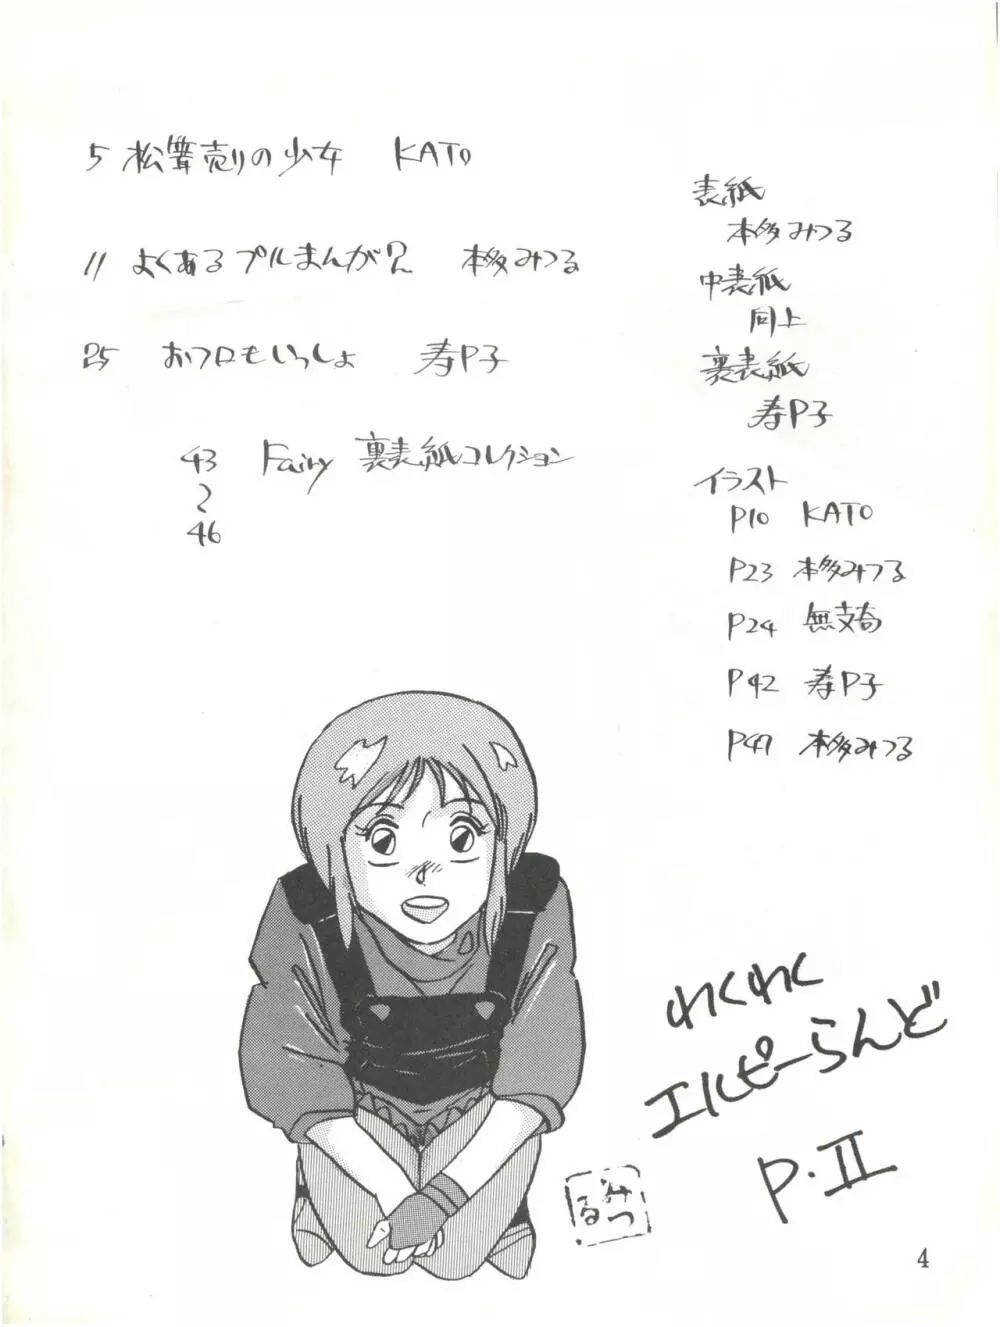 5 松茸売りの少女 KATO
11 よくあるプルまんが? 本多みつる
25 おフロもいっしょ 寿P子
43
〜
46
Fairy 裏表紙コレクション
表紙
本多みつる
中表紙
同上
裏表紙
寿P子
イラスト
P10 KATO
P23 本多みつる
P24
P42 寿P子
P47 本多みつる
わくわく
エルピーらんど
P・II
みつる
4